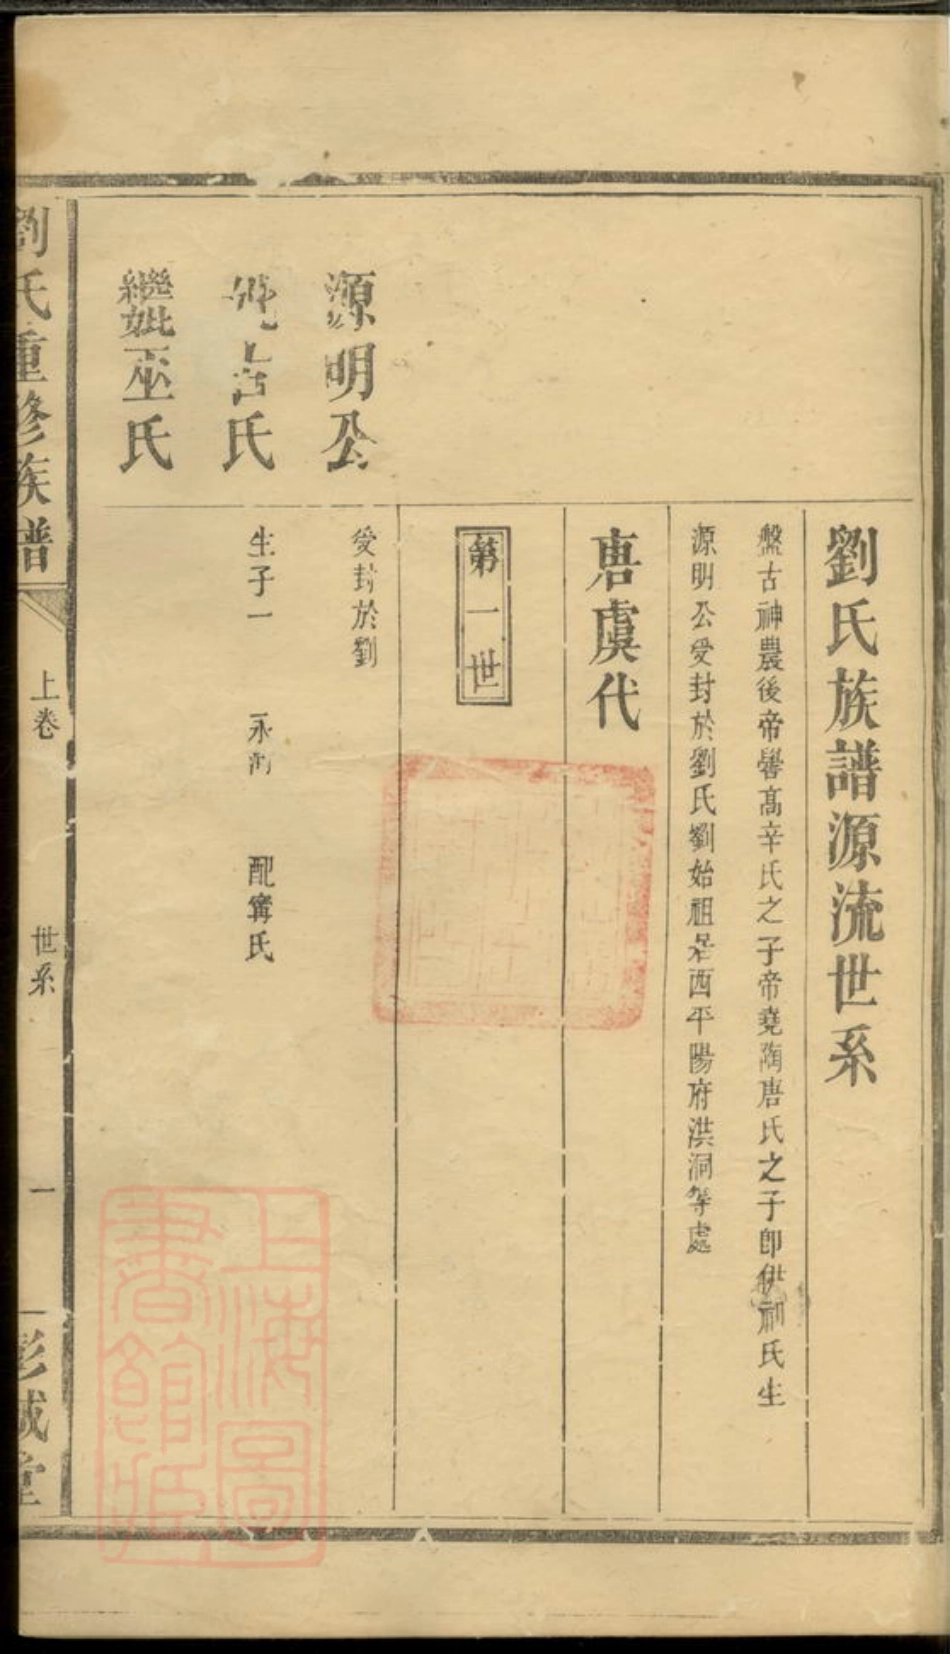 劉氏族譜源流世系
盤古神農後帝嚳髙辛氏之子帝堯陶唐氏之子即伊祁氏生
源明公受封於劉氏劉始祖居西平陽府洪洞等處
唐虞代
第一世
源明公
受封於劉
妣古氏
生子一 永 配甯氏
繼妣巫氏
劉氏重修族譜
上卷
世系
一
彭城堂
上海圖
書館藏